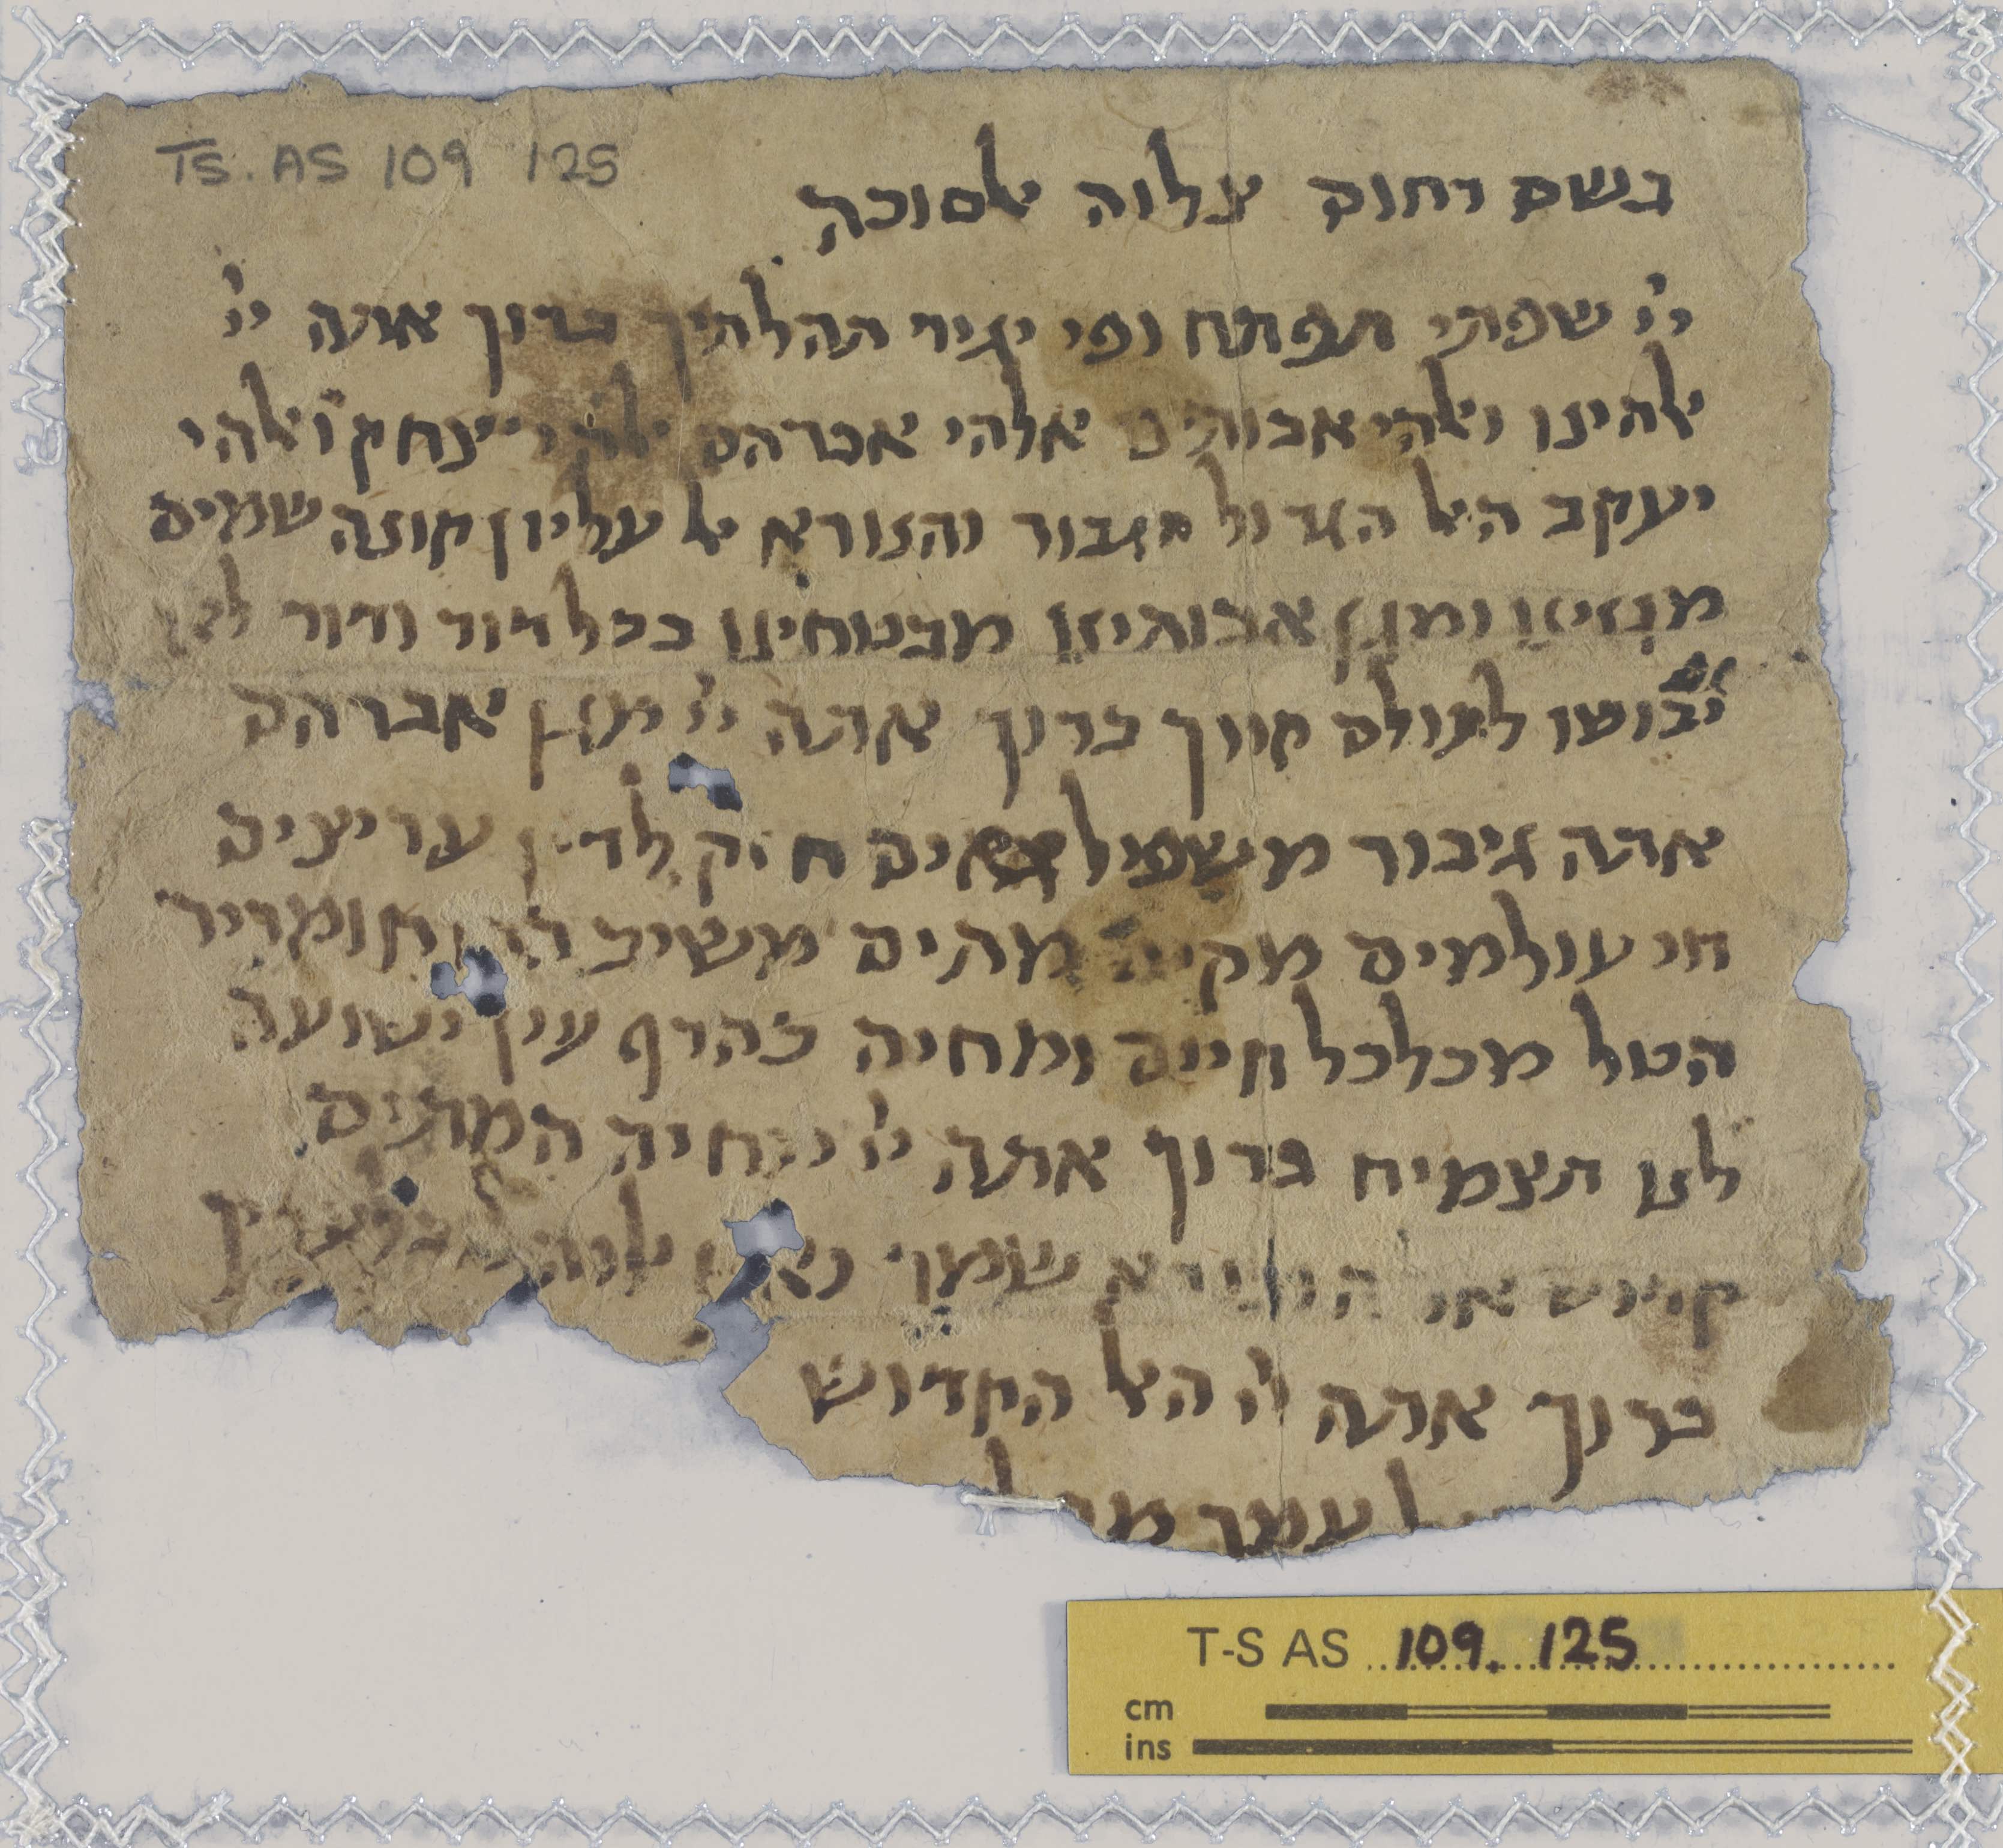 TS. AS 109 125
בשם רחום צלוה אלסוכה
ייי שפתי תפתח ופי יגיד תהלתיך ברוך אתה ייי
אלהינו ואלהי אבותינו אלהי אברהם אלהי יצחק ואלהי
יעקב האל הגדול הגבור והנורא אל עליון קונה שמים
מגנינו ומגן אבותינו מבטחינו בכל דור ודור לא
יבושו לעולם קוויך ברוך אתה ייי מגן אברהם
אתה גיבור משפיל גאים חזק לדין עריצים
חי עולמים מקים מתים משיב הרוח ומוריד
הטל מכלכל חיים ומחיה כהרף עין ישועה
לנו תצמיח ברוך אתה ייי מחיה המתים
קדוש אתה ונורא שמך
ברוך אתה ייי האל הקדוש
עמך
T-S AS 109. 125
cm
ins